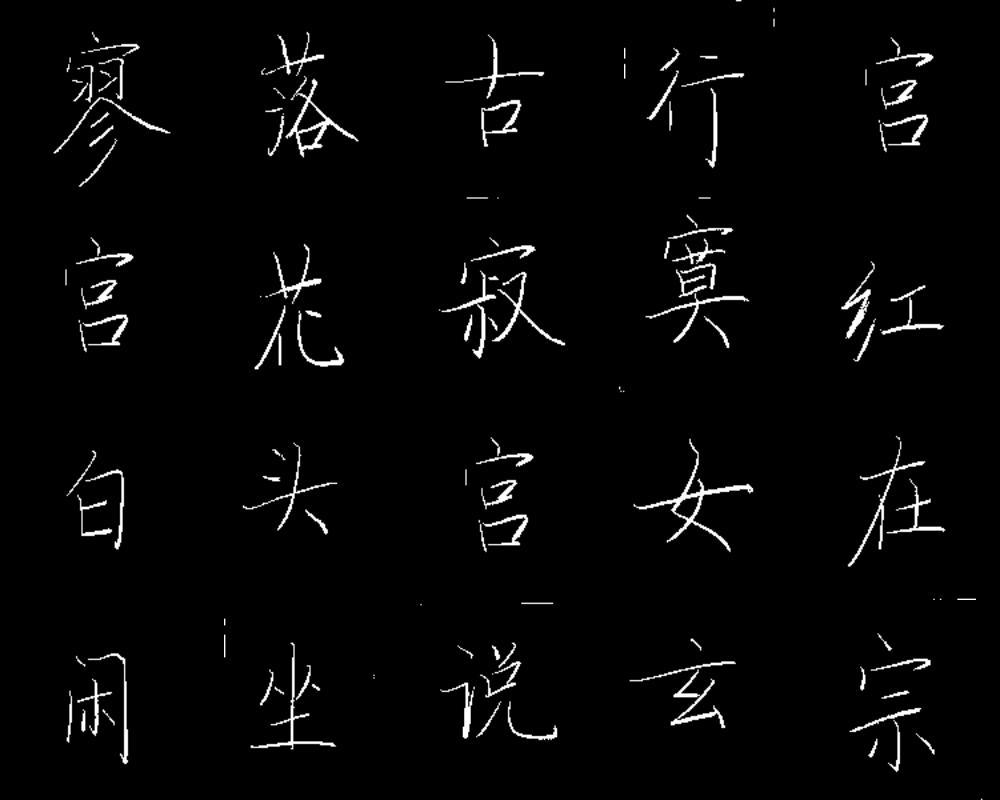 寥落古行宫
宫花寂寞红
白头宫女在
闲坐说玄宗